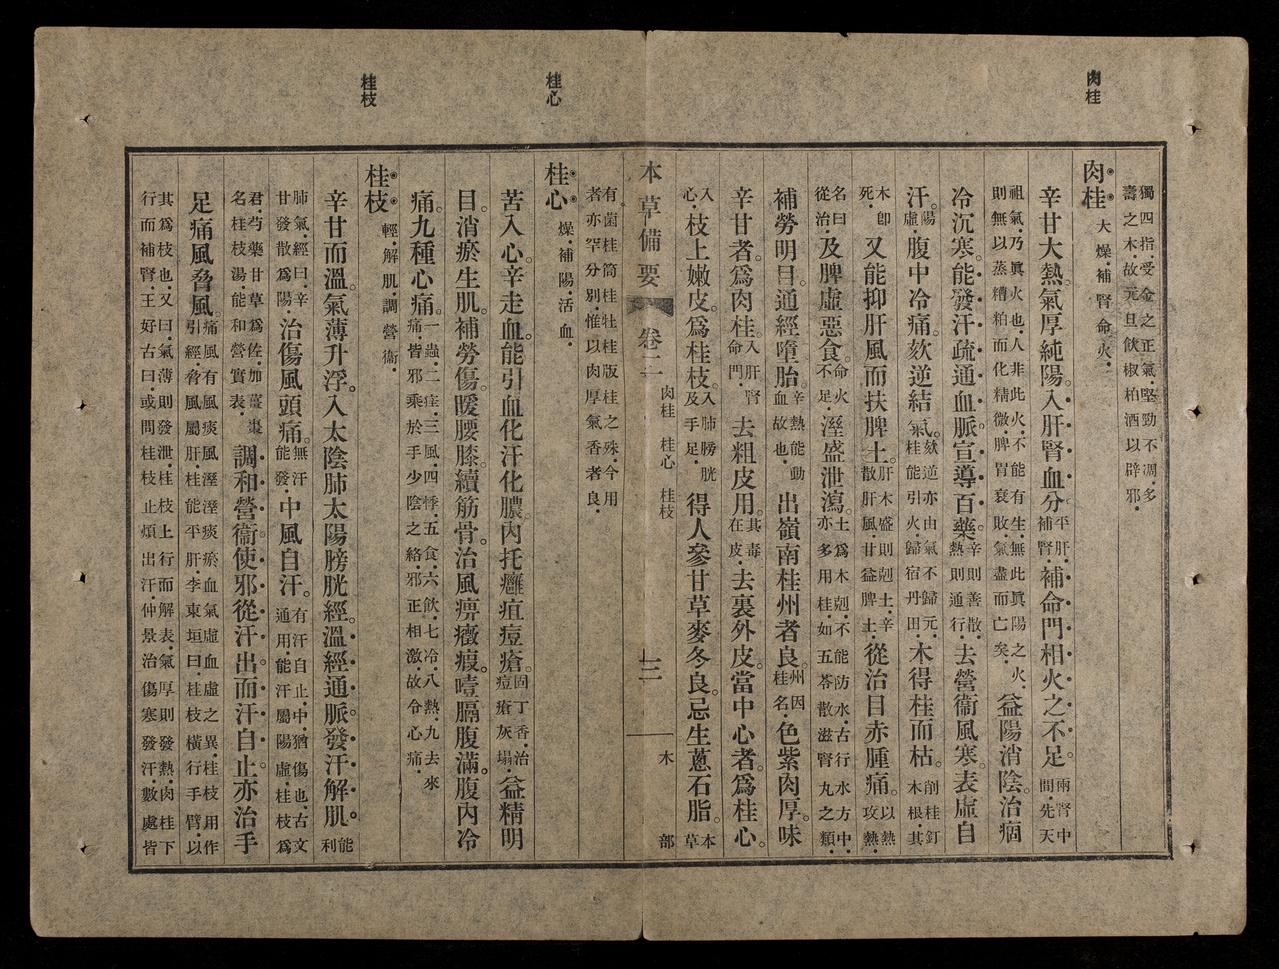 肉桂
桂心
桂枝
獨四指受金之正氣堅勁不凋多
壽之木故元旦飲椒柏酒以辟邪
肉桂 大燥補腎命火
辛甘大熱。氣厚純陽。入肝腎血分平肝補腎補命門相火之不足。兩腎中間先天
祖氣乃眞火也人非此火不能有生無此眞陽之火則無以蒸糟粕而化精微脾胃衰敗氣盡而亡矣益陽消陰。治痼
冷沉寒。能發汗疏通血脈。宣導百藥。辛則善散熱則通行去營衞風寒。表虛自
汗。陽虛腹中冷痛。欬逆結氣。欬逆亦由氣不歸元桂能引火歸宿丹田木得桂而枯。削桂釘木根其
木卽死又能抑肝風而扶脾土。肝木盛則剋土辛散肝風甘益脾土從治目赤腫痛。以熱攻熱
名曰從治及脾虛惡食。命火不足溼盛泄瀉。土爲木剋不能防水古行水方中亦多用桂如五苓散滋腎丸之類
補勞明目。通經墮胎。辛熱能動血故也出嶺南桂州者良。州因桂名色紫肉厚。味
辛甘者。爲肉桂。入肝腎命門去粗皮用。其毒在皮去裏外皮。當中心者。爲桂心。
入心枝上嫩皮。爲桂枝。入肺膀胱及手足得人參甘草麥冬良。忌生蔥石脂。本草
有菌桂筒桂牡桂版桂之殊今用
者亦罕分別惟以肉厚氣香者良
本草備要 卷二 肉桂 桂心 桂枝 三 木部
桂心 燥補陽活血
苦入心。辛走血。能引血化汗化膿。內托癰疽痘瘡。同丁香治痘瘡灰塌益精明
目。消瘀生肌。補勞傷。暖腰膝。續筋骨。治風痹癥瘕。噎膈腹滿。腹內冷
痛。九種心痛。一蟲二疰三風四悸五食六飲七冷八熱九去來痛皆邪乘於手少陰之絡邪正相激故令心痛
桂枝 輕解肌調營衞
辛甘而溫。氣薄升浮。入太陰肺太陽膀胱經。溫經通脈。發汗解肌。能利
肺氣經曰辛甘發散爲陽治傷風頭痛。無汗能發中風自汗。有汗自止中猶傷也古文通用能汗屬陽虛桂枝爲
君芍藥甘草爲佐加薑棗名桂枝湯能和營實表調和營衞。使邪從汗出。而汗自止。亦治手
足痛風脅風。痛風有風痰風溼溼痰瘀血氣虛血虛之異桂枝用作引經脅風屬肝桂能平肝李東垣曰桂枝橫行手臂以
其爲枝也又曰氣薄則發泄桂枝上行而解表氣厚則發熱肉桂下
行而補腎王好古曰或問桂枝止煩出汗仲景治傷寒發汗數處皆